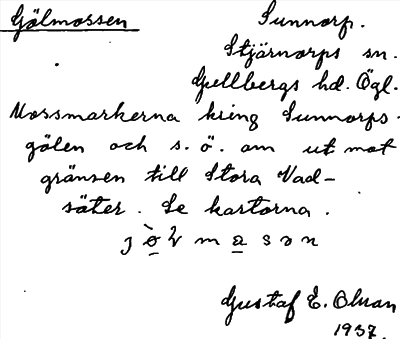 Gölmossen
Sunnorp.
Stjärnorps sn.
Gullbergs hd. Ögl.
Mossmarkerna kring Sunnorps-
gölen och s.ö. om ut mot
gränsen till Stora Vad-
säter. Se kartorna.
Gustaf E. Olsson
1937.